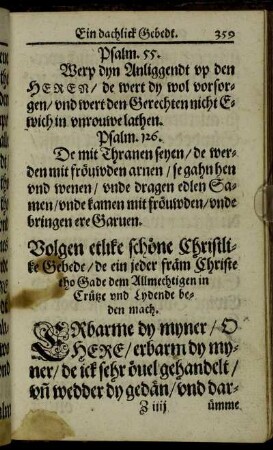 Ein dachlick Gebedt. 359
Psalm. 55.
Werp dyn Anliggendt vp den
HEREN/ de wert dy wol vorsor-
gen/ vnd wert den Gerechten nicht E-
wich in vnrouwe lathen.
Psalm. 126.
De mit Thranen seyen/ de wer-
den mit fröuwden arnen/ se gahn hen
vnd wenen/ vnde dragen edlen Sa-
men/ vnde kamen mit fröuwden/ vnde
bringen ere Garuen.
Volgen etlike schöne Christli-
ke Gebede/ de ein jeder främ Christe
tho Gade dem Allmechtigen in
Crütze vnd Lydende be-
den mach.
ERbarme dy myner/ O
HERE/ erbarm dy my-
ner/ de ick sehr övel gehandelt/
vñ wedder dy gedān/ vnd dar-
Z iiij ümme